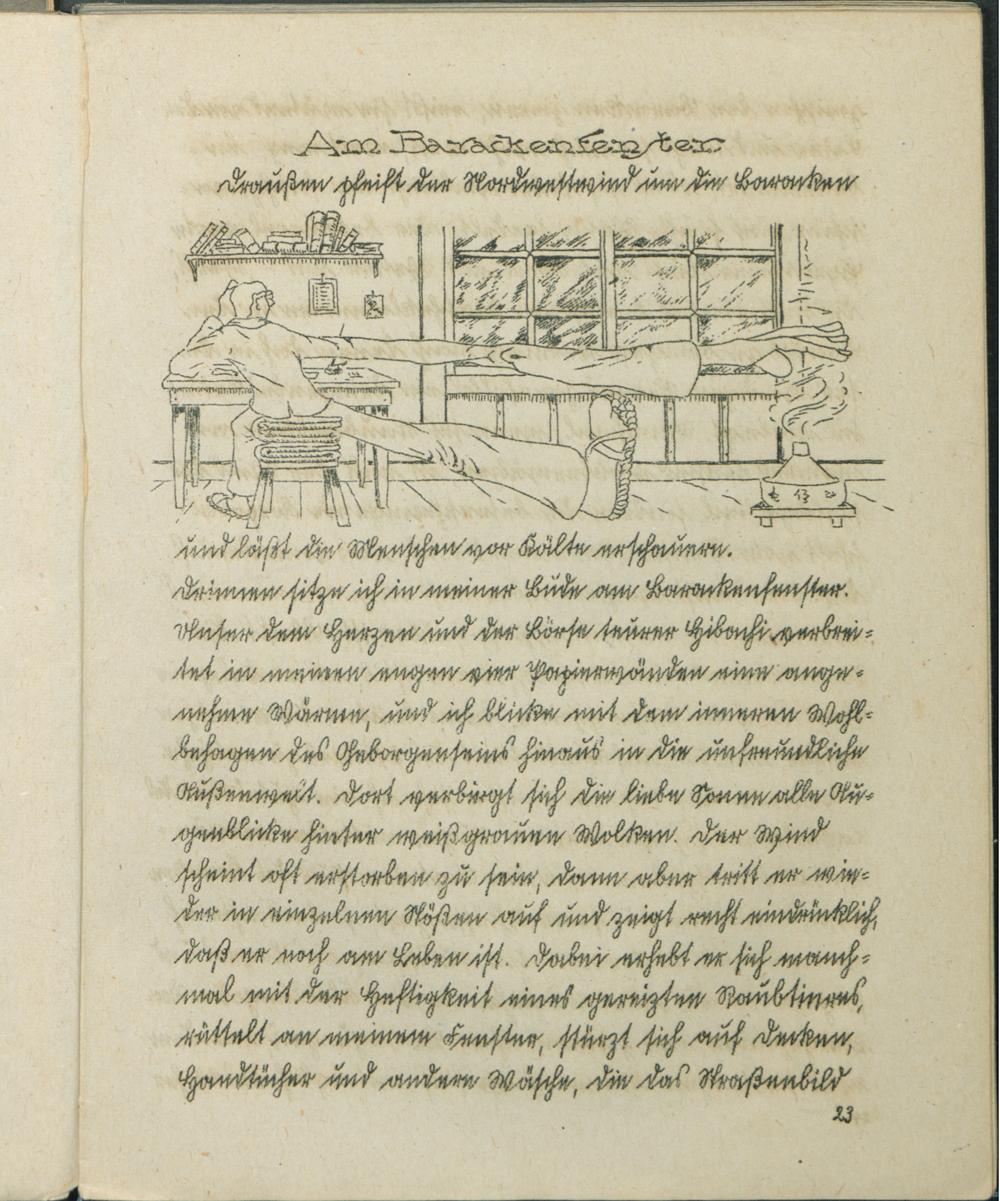 Am Barackenfenster
Draußen pfeift der Nordwestwind um die Baracken
und läßt die Menschen vor Kälte erschauern.
Drinnen sitze ich in meiner Bude am Barackenfenster.
Unser dem Herzen und der Börse teurer Hibachi verbrei=
tet in meinen engen vier Papierwänden eine ange=
nehme Wärme, und ich blicke mit dem inneren Wohl=
behagen des Geborgenseins hinaus in die unfreundliche
Außenwelt. Dort verbirgt sich die liebe Sonne alle Au=
genblicke hinter weißgrauen Wolken. Der Wind
scheint oft erstorben zu sein, dann aber tritt er wie=
der in einzelnen Stößen auf und zeigt recht eindrücklich,
daß er noch am Leben ist. Dabei erhebt er sich manch=
mal mit der Heftigkeit eines gereizten Raubtieres,
rüttelt an meinem Fenster, stürzt sich auf Decken,
Handtücher und andere Wäsche, die das Straßenbild
23